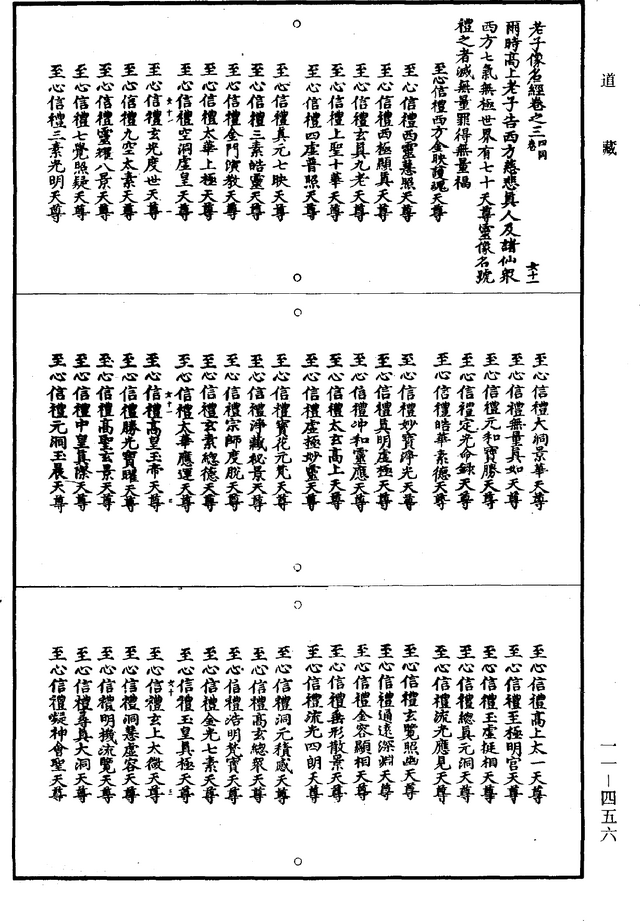 道藏
老子像名經卷之三 四同卷 女十一
爾時高上老子告西方慈悲真人及諸仙眾
西方七氣無極世界有七十天尊靈像名號
禮之者滅無量罪得無量福
至心信禮西方金映護魂天尊
至心信禮西靈慧照天尊
至心信禮西極顯真天尊
至心信禮玄真九老天尊
至心信禮上聖十華天尊
至心信禮四虛普照天尊
至心信禮真元七映天尊
至心信禮三素皓靈天尊
至心信禮金門演教天尊
至心信禮太華上極天尊
至心信禮空洞虛皇天尊
至心信禮玄光度世天尊
至心信禮九空太素天尊
至心信禮靈耀八景天尊
至心信禮七覺照疑天尊
至心信禮三素光明天尊
至心信禮大洞景華天尊
至心信禮無量真如天尊
至心信禮元和寶勝天尊
至心信禮定光命錄天尊
至心信禮皓華素德天尊
至心信禮妙寶濟光天尊
至心信禮真明虛極天尊
至心信禮沖和靈應天尊
至心信禮太玄高上天尊
至心信禮虛極妙靈天尊
至心信禮寶花元梵天尊
至心信禮淨藏秘景天尊
至心信禮宗師度脫天尊
至心信禮玄素總德天尊
至心信禮太華應運天尊
至心信禮高皇玉帝天尊
至心信禮勝光寶曜天尊
至心信禮高聖玄景天尊
至心信禮中皇真際天尊
至心信禮元洞玉晨天尊
至心信禮高上太一天尊
至心信禮至極明宮天尊
至心信禮玉虛挺相天尊
至心信禮總真元洞天尊
至心信禮流光應見天尊
至心信禮玄覽照幽天尊
至心信禮通遠深淵天尊
至心信禮金容顯相天尊
至心信禮無形散景天尊
至心信禮流光四朗天尊
至心信禮洞元積感天尊
至心信禮高玄總眾天尊
至心信禮浩明梵寶天尊
至心信禮金光七素天尊
至心信禮玉皇真極天尊
至心信禮玄上大微天尊
至心信禮洞慧虛容天尊
至心信禮明機流覽天尊
至心信禮尋真大洞天尊
至心信禮凝神會聖天尊
一一—四五六